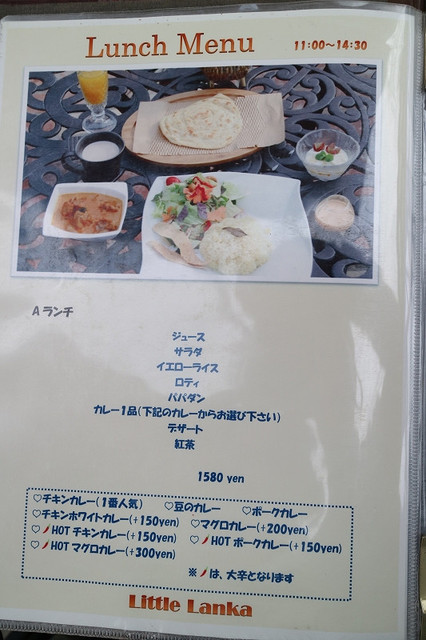 Lunch Menu 11:00～14:30
Aランチ
ジュース
サラダ
イエローライス
ロティ
パパダン
カレー1品(下記のカレーからお選び下さい)
デザート
紅茶
1580 yen
♡チキンカレー(1番人気) ♡豆のカレー ♡ポークカレー
♡チキンホワイトカレー(+150yen) ♡マグロカレー(+200yen)
♡🌶HOT チキンカレー(+150yen) ♡🌶HOT ポークカレー(+150yen)
♡🌶HOT マグロカレー(+300yen)
※🌶は、大辛となります
Little Lanka